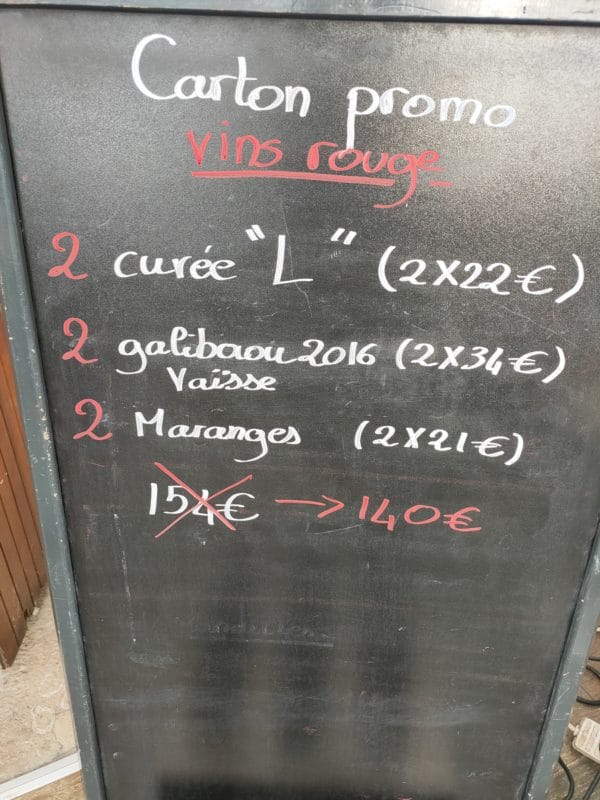 Carton promo
vins rouge
2 curée "L" (2X22€)
2 galibaou 2016 (2X34€)
Vaïsse
2 Maranges (2X21€)
154€ → 140€